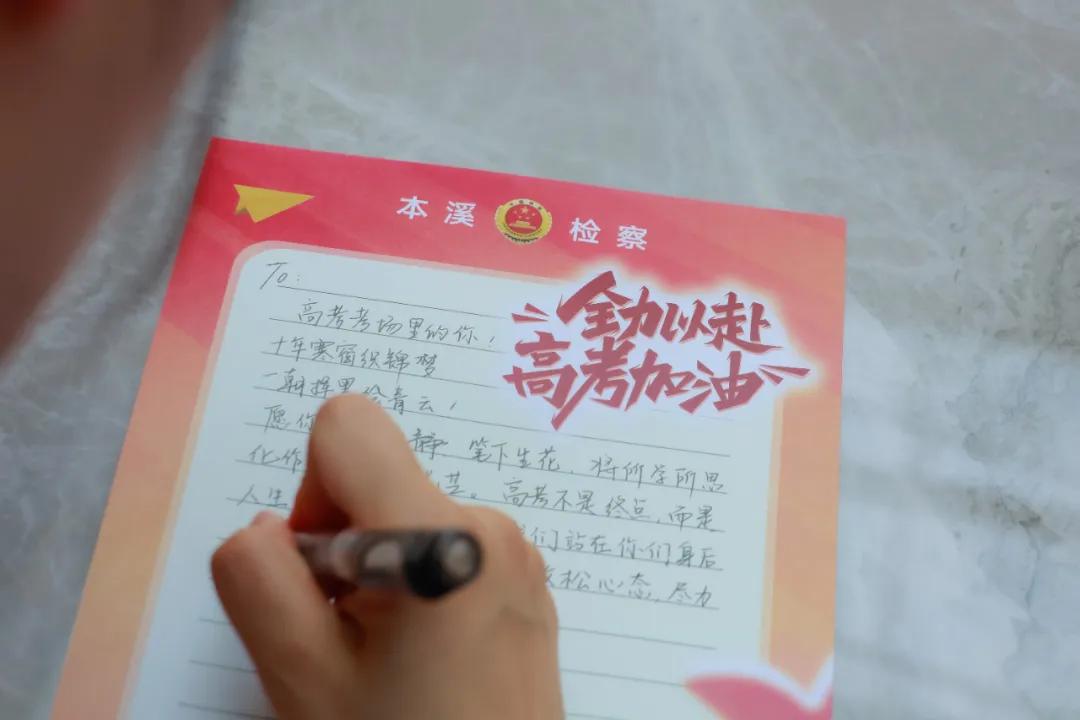 本溪 检察
全力以赴
高考加油
To:
高考考场里的你,
十年寒窗织锦梦
一朝挥 青云,
愿你 静, 笔下生花, 将所学所思
化作 。高考不是终点,而是
人生 们站在你们身后
松心态,尽力